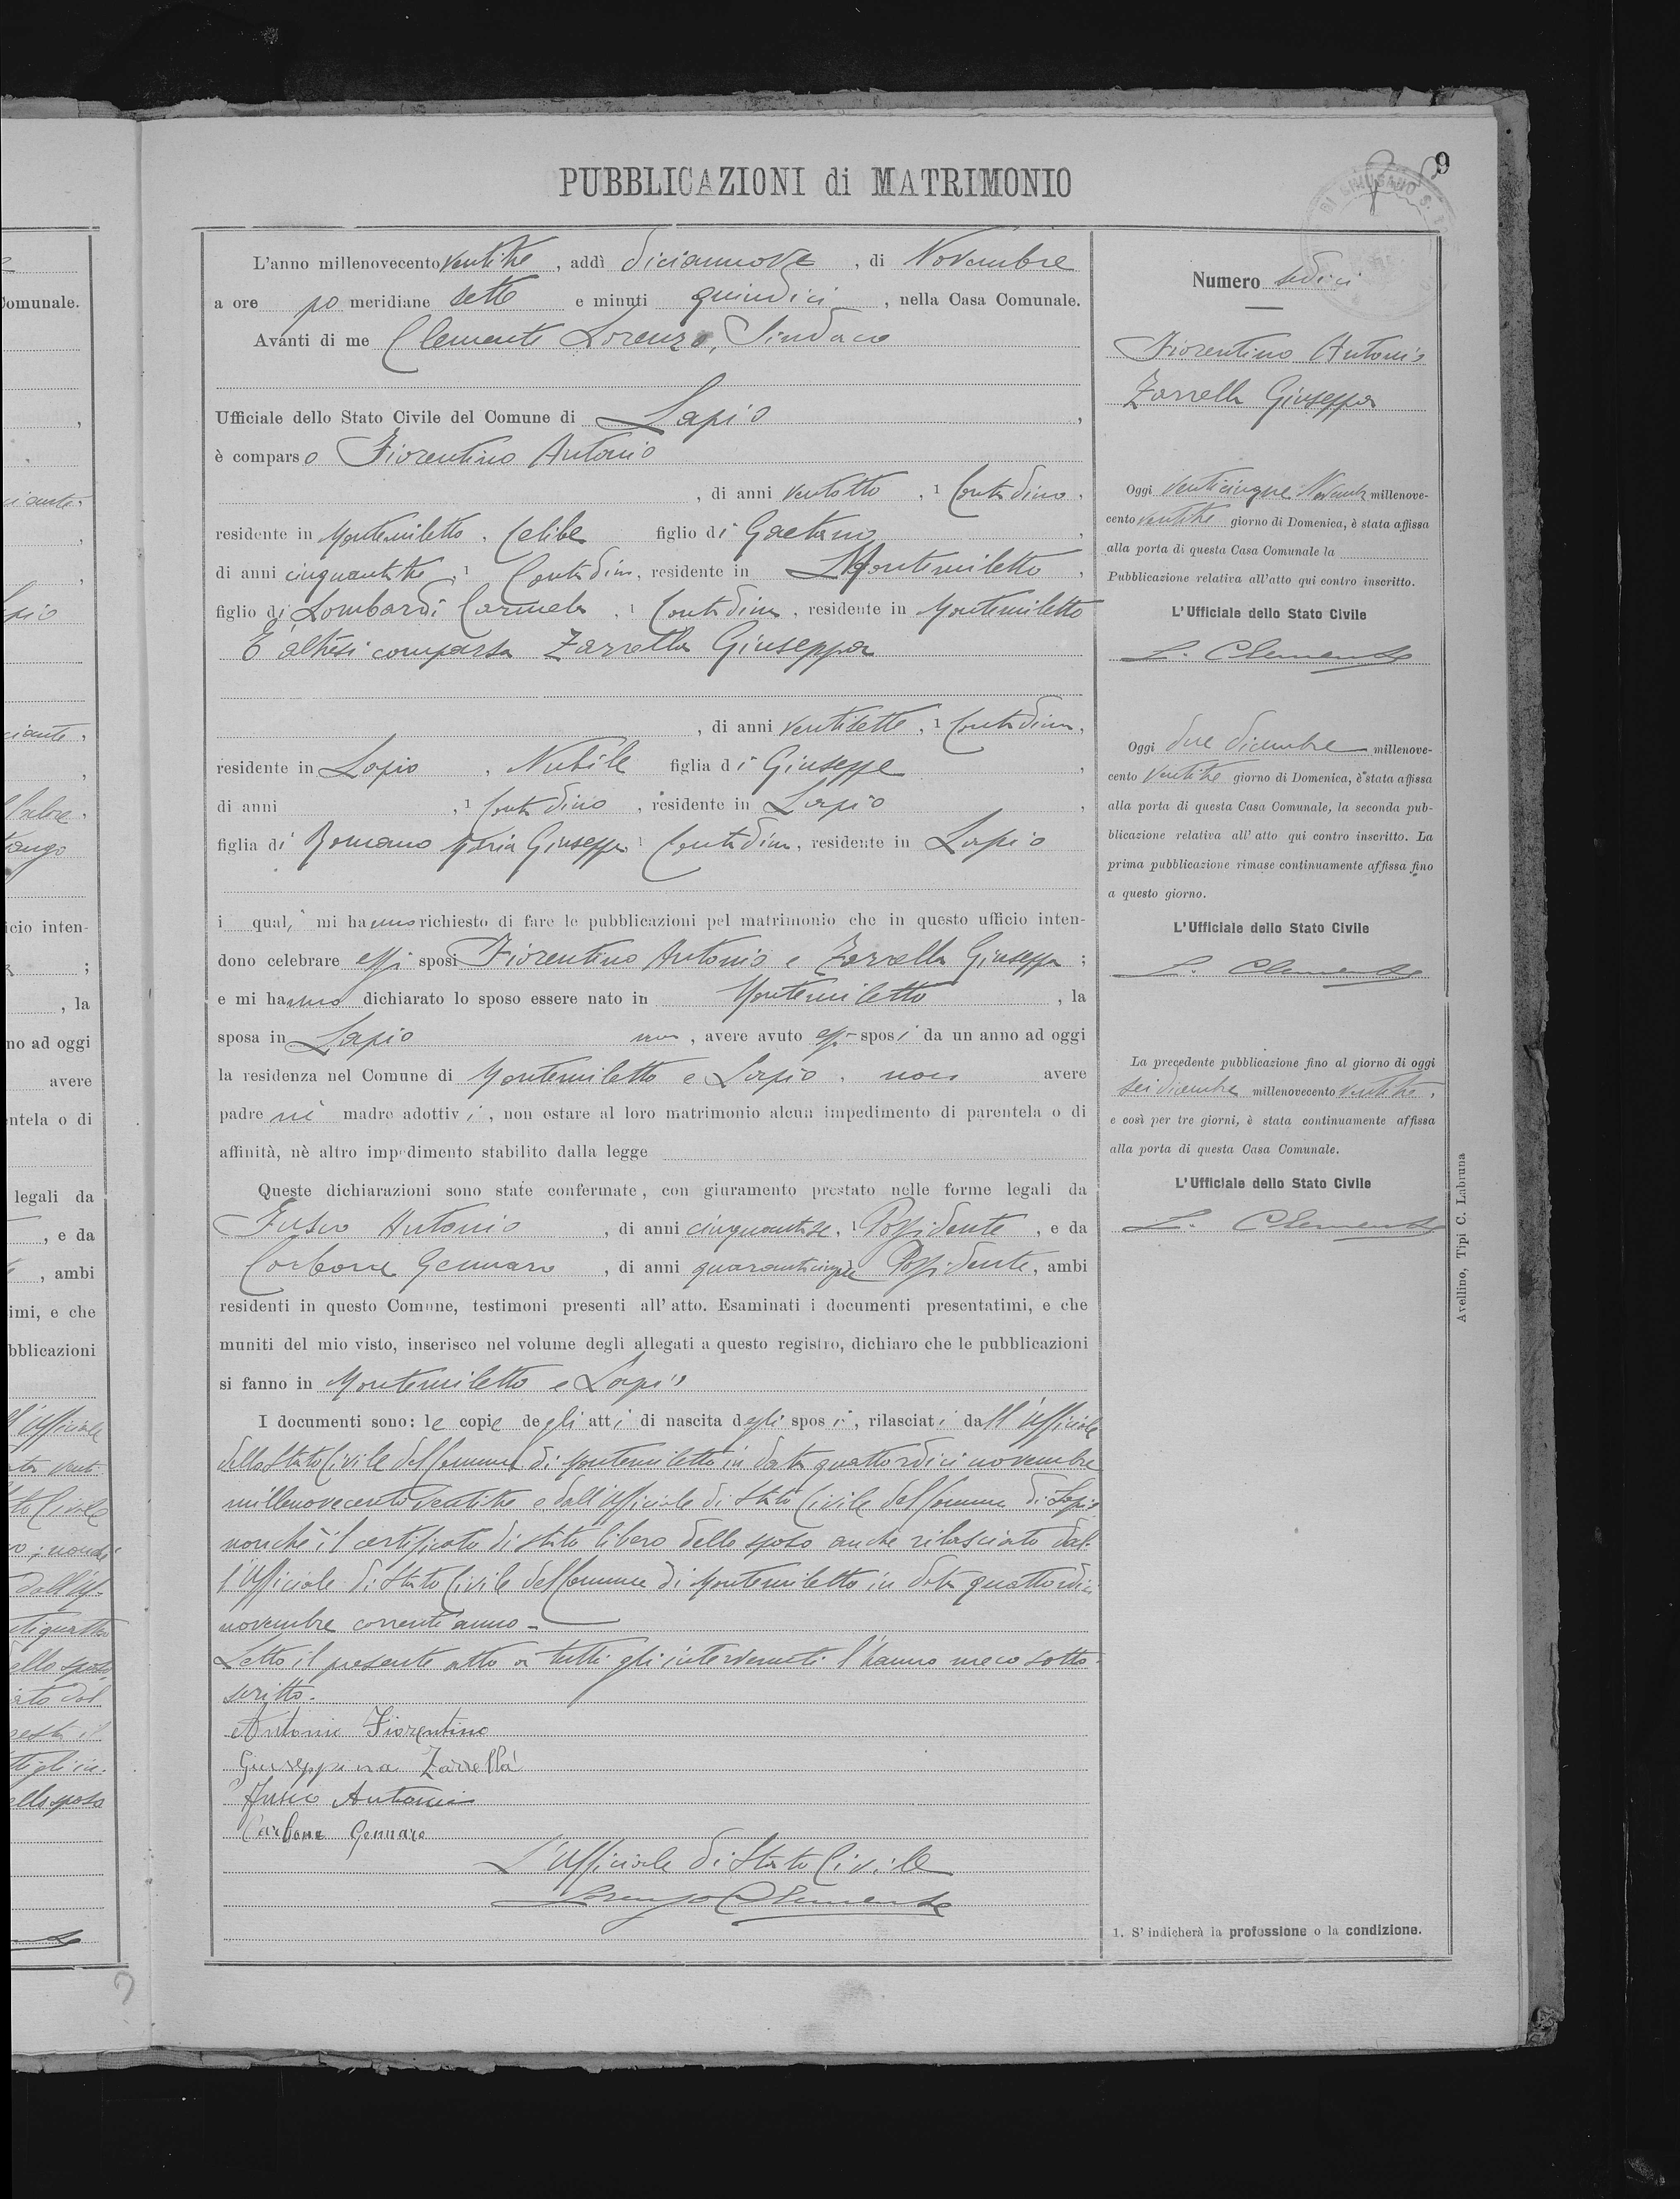 PUBBLICAZIONI di MATRIMONIO
9
L'anno millenovecento ventitre, addì diciannove, di Novembre
a ore po meridiane sette e minuti quindici, nella Casa Comunale.
Avanti di me Clemente Lorenzo, Sindaco
Ufficiale dello Stato Civile del Comune di Lapio,
è comparso Fiorentino Antonio
, di anni ventotto, 1 Contadino,
residente in Montemiletto, Celibe figlio di Gaetano,
di anni cinquantatre, 1 Contadino, residente in Montemiletto,
figlio di Lombardi Carmela, 1 Contadina, residente in Montemiletto
E altresì comparsa Zarrella Giuseppa
, di anni ventisette, 1 Contadina,
residente in Lapio, Nubile figlia di Giuseppe,
di anni , 1 Contadino, residente in Lapio,
figlia di Romano Maria Giuseppa 1 Contadina, residente in Lapio
i quali mi hanno richiesto di fare le pubblicazioni pel matrimonio che in questo ufficio inten-
dono celebrare essi sposi Fiorentino Antonio e Zarrella Giuseppa;
e mi hanno dichiarato lo sposo essere nato in Montemiletto, la
sposa in Lapio, avere avuto essi sposi da un anno ad oggi
la residenza nel Comune di Montemiletto e Lapio, non avere
padre nè madre adottivi, non ostare al loro matrimonio alcun impedimento di parentela o di
affinità, nè altro impedimento stabilito dalla legge
Queste dichiarazioni sono state confermate, con giuramento prestato nelle forme legali da
Fusco Antonio, di anni 1 Possidente, e da
Carbone Gennaro, di anni quarantacinque Possidente, ambi
residenti in questo Comune, testimoni presenti all'atto. Esaminati i documenti presentatimi, e che
muniti del mio visto, inserisco nel volume degli allegati a questo registro, dichiaro che le pubblicazioni
si fanno in Montemiletto e Lapio
I documenti sono: le copie degli atti di nascita degli sposi, rilasciati dall'Ufficiale
dello Stato Civile del Comune di Montemiletto in data quattordici novembre
millenovecentoventitre e dall'Ufficiale di Stato Civile del Comune di Lapio
nonchè il certificato di stato libero dello sposo anche rilasciato dal-
l'Ufficiale di Stato Civile del Comune di Montemiletto in data quattordici
novembre corrente anno.
Letto il presente atto a tutti gli intervenuti l'hanno meco sotto-
scritto.
Antonio Fiorentino
Giuseppina Zarrella
Fusco Antonio
Carbone Gennaro
L'Ufficiale di Stato Civile
Lorenzo Clemente
Numero sedici
Fiorentino Antonio
Zarrella Giuseppa
Oggi venticinque Novembre millenove-
cento ventitre giorno di Domenica, è stata affissa
alla porta di questa Casa Comunale la
Pubblicazione relativa all'atto qui contro inscritto.
L'Ufficiale dello Stato Civile
L. Clemente
Oggi due dicembre millenove-
cento ventitre giorno di Domenica, è stata affissa
alla porta di questa Casa Comunale, la seconda pub-
blicazione relativa all'atto qui contro inscritto. La
prima pubblicazione rimase continuamente affissa fino
a questo giorno.
L'Ufficiale dello Stato Civile
L. Clemente
La precedente pubblicazione fino al giorno di oggi
sei dicembre millenovecento ventitre,
e così per tre giorni, è stata continuamente affissa
alla porta di questa Casa Comunale.
L'Ufficiale dello Stato Civile
L. Clemente
1. S'indicherà la professione o la condizione.
Avellino, Tipi C. Labruna